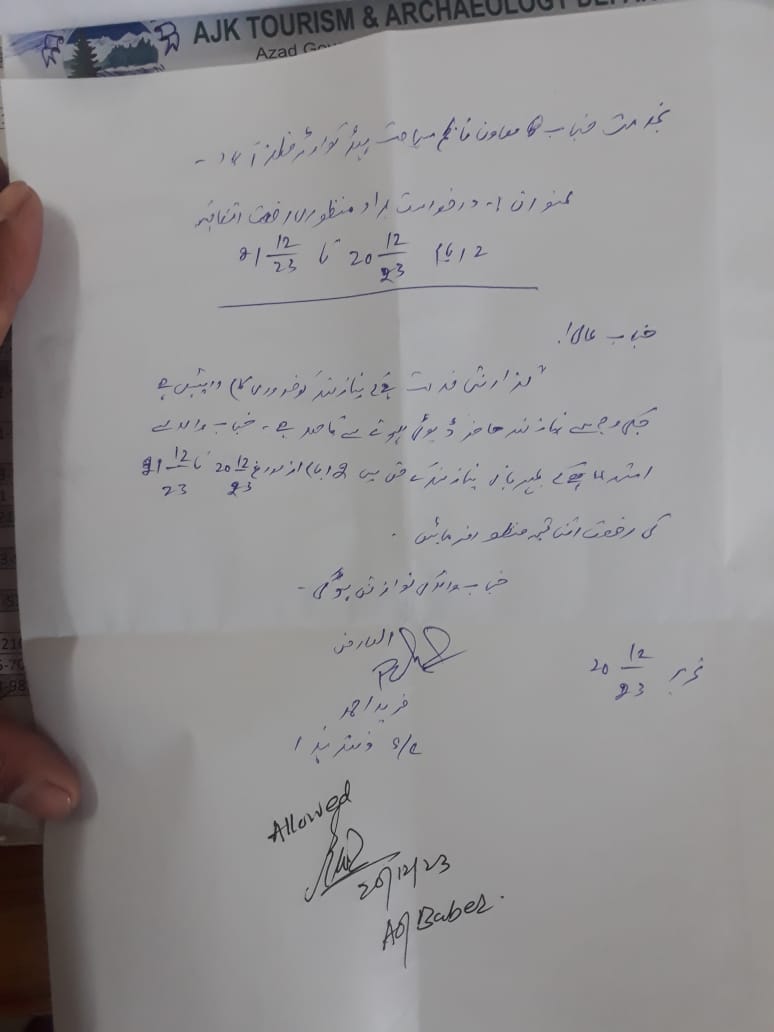 AJK TOURISM & ARCHAEOLOGY
Azad Go
بخدمت جناب معاون ناظم سیاحت ہیڈ کوارٹر مظفرآباد -
عنوان :- درخواست برائے منظوری رخصت اتفاقیہ
2 ایام 20 12/23 تا 21 12/23
جناب عالی!
گزارش خدمت ہے نیازمند کو ضروری کام درپیش ہے
جس کی وجہ سے نیازمند حاضر ڈیوٹی ہونے سے قاصر ہے - جناب والا سے
استدعا ہے کہ مہربانی نیازمند کے حق میں 2 ایام از مورخہ 20 12/23 تا 21 12/23
کی رخصت اتفاقیہ منظور فرمائیں -
جناب والا کی نوازش ہوگی -
العارض
فرید احمد
تحریر 20 12/23
Allowed
20/12/23
AO/Baber.